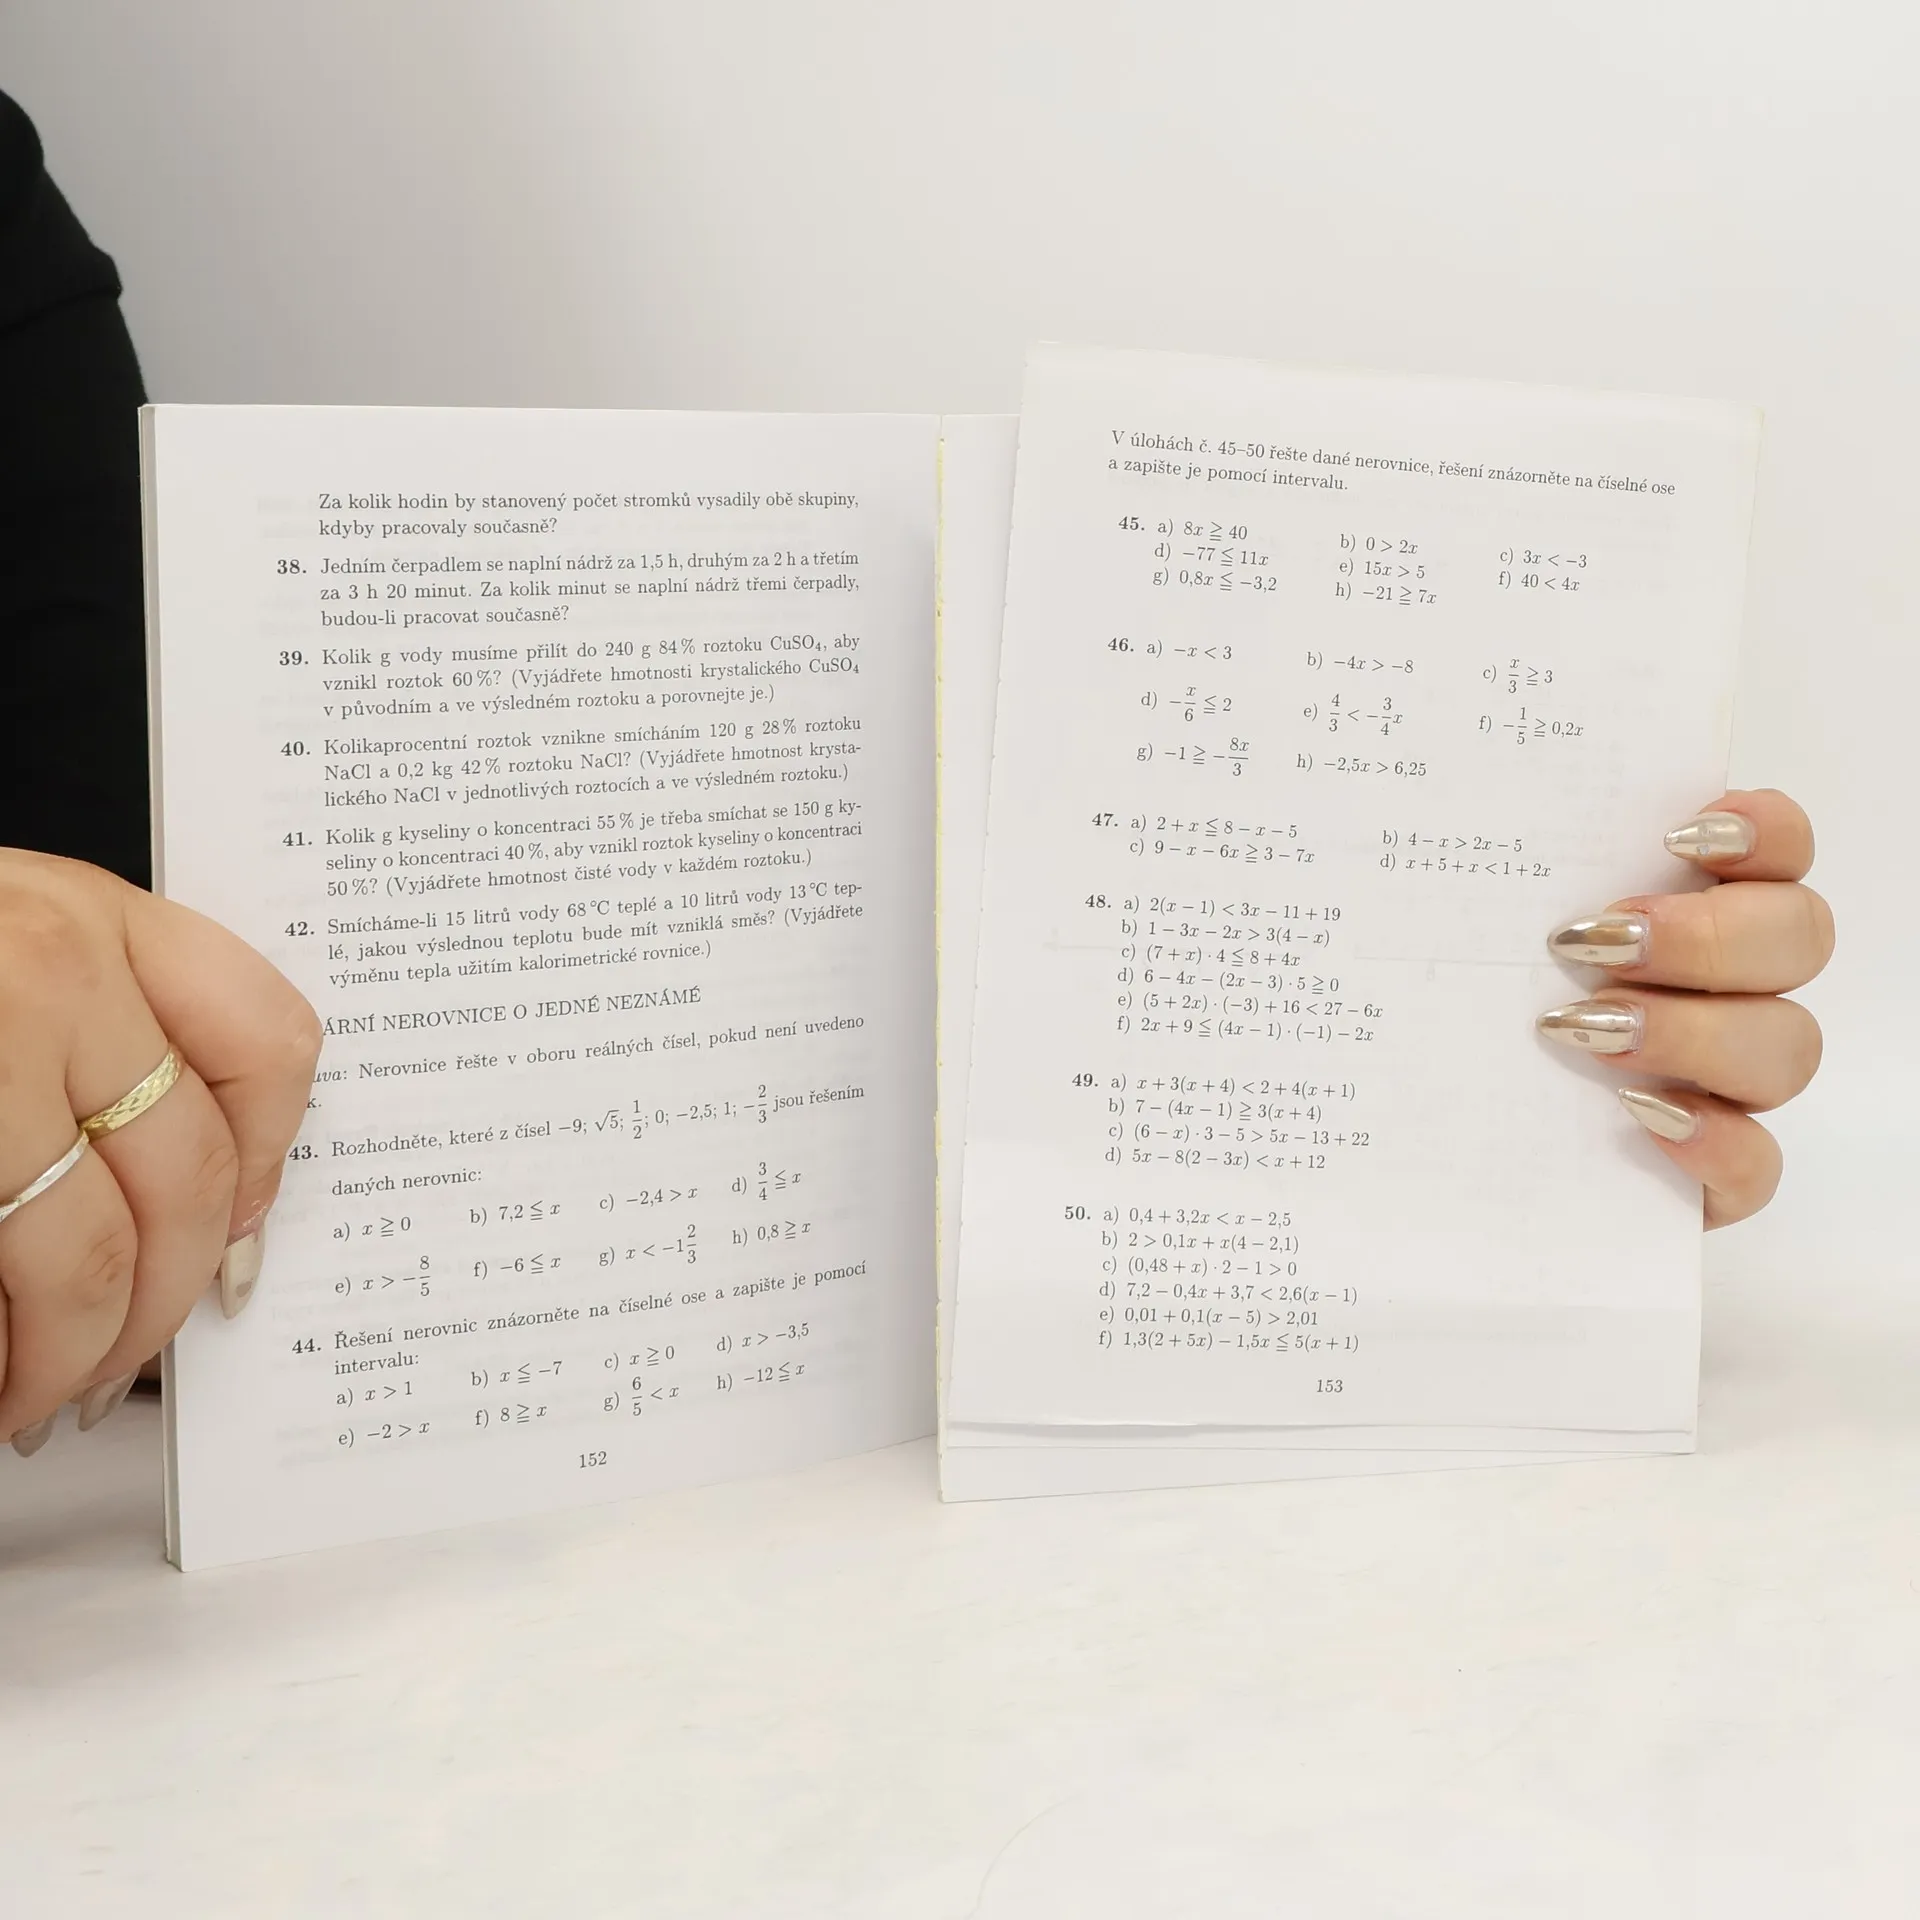 Za kolik hodin by stanovený počet stromků vysadily obě skupiny,
kdyby pracovaly současně?
38. Jedním čerpadlem se naplní nádrž za 1,5 h, druhým za 2 h a třetím
za 3 h 20 minut. Za kolik minut se naplní nádrž třemi čerpadly,
budou-li pracovat současně?
39. Kolik g vody musíme přilít do 240 g 84 % roztoku CuSO₄, aby
vznikl roztok 60 %? (Vyjádřete hmotnosti krystalického CuSO₄
v původním a ve výsledném roztoku a porovnejte je.)
40. Kolikaprocentní roztok vznikne smícháním 120 g 28 % roztoku
NaCl a 0,2 kg 42 % roztoku NaCl? (Vyjádřete hmotnost krysta-
lického NaCl v jednotlivých roztocích a ve výsledném roztoku.)
41. Kolik g kyseliny o koncentraci 55 % je třeba smíchat se 150 g ky-
seliny o koncentraci 40 %, aby vznikl roztok kyseliny o koncentraci
50 %? (Vyjádřete hmotnost čisté vody v každém roztoku.)
42. Smícháme-li 15 litrů vody 68 °C teplé a 10 litrů vody 13 °C tep-
lé, jakou výslednou teplotu bude mít vzniklá směs? (Vyjádřete
výměnu tepla užitím kalorimetrické rovnice.)
ÁRNÍ NEROVNICE O JEDNÉ NEZNÁMÉ
uva: Nerovnice řešte v oboru reálných čísel, pokud není uvedeno
k.
43. Rozhodněte, které z čísel −9; √5; 1/2; 0; −2,5; 1; −2/3 jsou řešením
daných nerovnic:
a) x ≧ 0 b) 7,2 ≦ x c) −2,4 > x d) 3/4 ≦ x
e) x > −8/5 f) −6 ≦ x g) x < −1 2/3 h) 0,8 ≧ x
44. Řešení nerovnic znázorněte na číselné ose a zapište je pomocí
intervalu:
a) x > 1 b) x ≦ −7 c) x ≧ 0 d) x > −3,5
e) −2 > x f) 8 ≧ x g) 6/5 < x h) −12 ≦ x
152
V úlohách č. 45–50 řešte dané nerovnice, řešení znázorněte na číselné ose
a zapište je pomocí intervalu.
45. a) 8x ≧ 40 b) 0 > 2x c) 3x < −3
d) −77 ≦ 11x e) 15x > 5 f) 40 < 4x
g) 0,8x ≦ −3,2 h) −21 ≧ 7x
46. a) −x < 3 b) −4x > −8 c) x/3 ≧ 3
d) −x/6 ≦ 2 e) 4/3 < −3/4 x f) −1/5 ≧ 0,2x
g) −1 ≧ −8x/3 h) −2,5x > 6,25
47. a) 2 + x ≦ 8 − x − 5 b) 4 − x > 2x − 5
c) 9 − x − 6x ≧ 3 − 7x d) x + 5 + x < 1 + 2x
48. a) 2(x − 1) < 3x − 11 + 19
b) 1 − 3x − 2x > 3(4 − x)
c) (7 + x) · 4 ≦ 8 + 4x
d) 6 − 4x − (2x − 3) · 5 ≧ 0
e) (5 + 2x) · (−3) + 16 < 27 − 6x
f) 2x + 9 ≦ (4x − 1) · (−1) − 2x
49. a) x + 3(x + 4) < 2 + 4(x + 1)
b) 7 − (4x − 1) ≧ 3(x + 4)
c) (6 − x) · 3 − 5 > 5x − 13 + 22
d) 5x − 8(2 − 3x) < x + 12
50. a) 0,4 + 3,2x < x − 2,5
b) 2 > 0,1x + x(4 − 2,1)
c) (0,48 + x) · 2 − 1 > 0
d) 7,2 − 0,4x + 3,7 < 2,6(x − 1)
e) 0,01 + 0,1(x − 5) > 2,01
f) 1,3(2 + 5x) − 1,5x ≦ 5(x + 1)
153